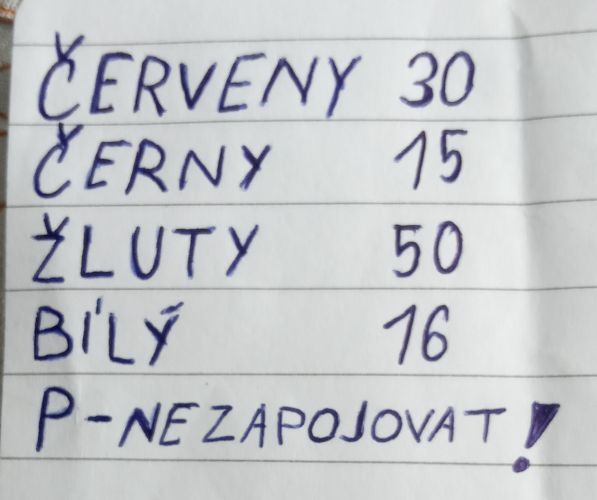 ČERVENY 30
ČERNY 15
ŽLUTY 50
BÍLÝ 16
P-NEZAPOJOVAT!